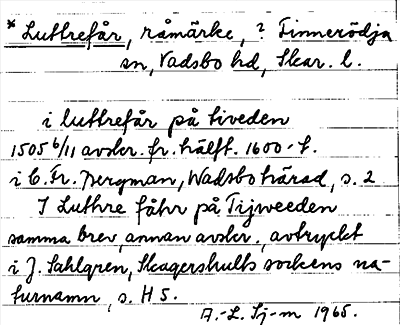 * Luttrefår, råmärke, ? Tinnerödja
sn, Vadsbo hd, Skar. l.
i luttrefår på tiveden
1505 6/11 avskr. fr. hälft. 1600-t.
i C. Fr. Bergman, Wadsbo härad, s. 2
I Luthre fåhr på Tijweeden
samma brev, annan avskr., avtryckt
i J. Sahlgren, Skagershults sockens na-
turnamn, s. H 5.
A.-L. Sj-m 1965.